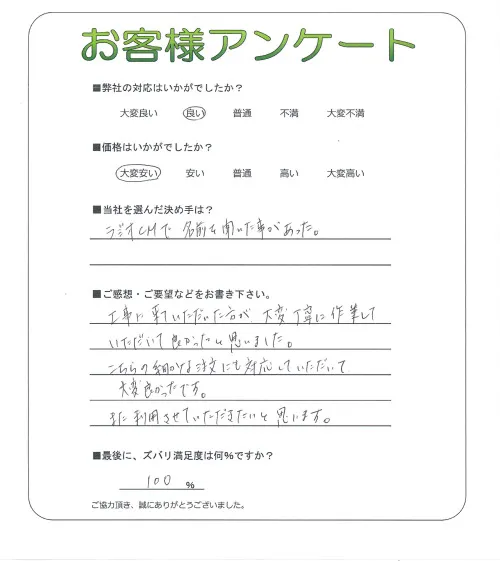 お客様アンケート
■弊社の対応はいかがでしたか？
大変良い 良い 普通 不満 大変不満
■価格はいかがでしたか？
大変安い 安い 普通 高い 大変高い
■当社を選んだ決め手は？
ラジオCMで 名前を聞いた事があった。
■ご感想・ご要望などをお書き下さい。
工事に来ていただいた方が、大変丁寧に作業して
いただいて良かったと思いました。
こちらの細かな注文にも対応していただいて
大変良かったです。
また利用させていただきたいと思います。
■最後に、ズバリ満足度は何%ですか？
100 %
ご協力頂き、誠にありがとうございました。